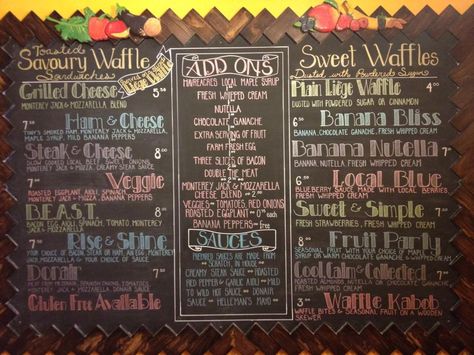 Toasted
Savoury Waffle
Sandwiches
Liège Waffle
Grilled Cheese
MONTEREY JACK & MOZZARELLA BLEND
Ham & Cheese
TONY'S SMOKED HAM, MONTEREY JACK & MOZZARELLA,
MAPLE SYRUP, MILD BANANA PEPPERS
Steak & Cheese
SLOW COOKED LOCAL BEEF, SWEET ONIONS,
MONTEREY JACK & MOZZA, CREAMY STEAK SAUCE
Veggie
ROASTED EGGPLANT, AIOLI, SPINACH,
MONTEREY JACK & MOZZA, BANANA PEPPERS
B.E.A.S.T.
BACON, EGG, AIOLI, SPINACH, TOMATO, MONTEREY
JACK & MOZZA
Rise & Shine
YOUR CHOICE OF BACON, STEAK OR HAM, AN EGG, MONTEREY
JACK, MOZZARELLA & YOUR CHOICE OF SAUCE
Donair
MONTEREY JACK & MOZZARELLA, DONAIR SAUCE
Gluten Free Available
ADD ONS
LOCAL MAPLE SYRUP
FRESH WHIPPED CREAM
NUTELLA
CHOCOLATE GANACHE
EXTRA SERVING OF FRUIT
FARM FRESH EGG
THREE SLICES OF BACON
DOUBLE THE MEAT
MONTEREY JACK & MOZZARELLA
CHEESE BLEND
VEGGIES - TOMATOES, RED ONIONS
ROASTED EGGPLANT EACH
BANANA PEPPERS - FREE
SAUCES
PREPARED SAUCES ARE MADE FROM
SCRATCH, IN HOUSE
CREAMY STEAK SAUCE ROASTED
RED PEPPER & GARLIC AIOLI MILD
TO WILD HOT SAUCE DONAIR
SAUCE HELLEMAN'S MAYO
Sweet Waffles
Dusted with Powdered Sugar
Plain Liège Waffle 4
DUSTED WITH POWDERED SUGAR OR CINNAMON
Banana Bliss
BANANA, CHOCOLATE GANACHE, FRESH WHIPPED CREAM
Banana Nutella
BANANA, NUTELLA, FRESH WHIPPED CREAM
Local Blue
BLUEBERRY SAUCE MADE WITH LOCAL BERRIES,
FRESH WHIPPED CREAM
Sweet & Simple
FRESH STRAWBERRIES, FRESH WHIPPED CREAM
Fruit Party
SEASONAL FRUIT WITH YOUR CHOICE OF MAPLE
SYRUP OR WARM CHOCOLATE GANACHE & WHIPPED CREAM
Cool, Calm & Collected
ROASTED ALMONDS, NUTELLA OR CHOCOLATE
Waffle Kabob
WAFFLE BITES & SEASONAL FRUIT ON A WOODEN
SKEWER